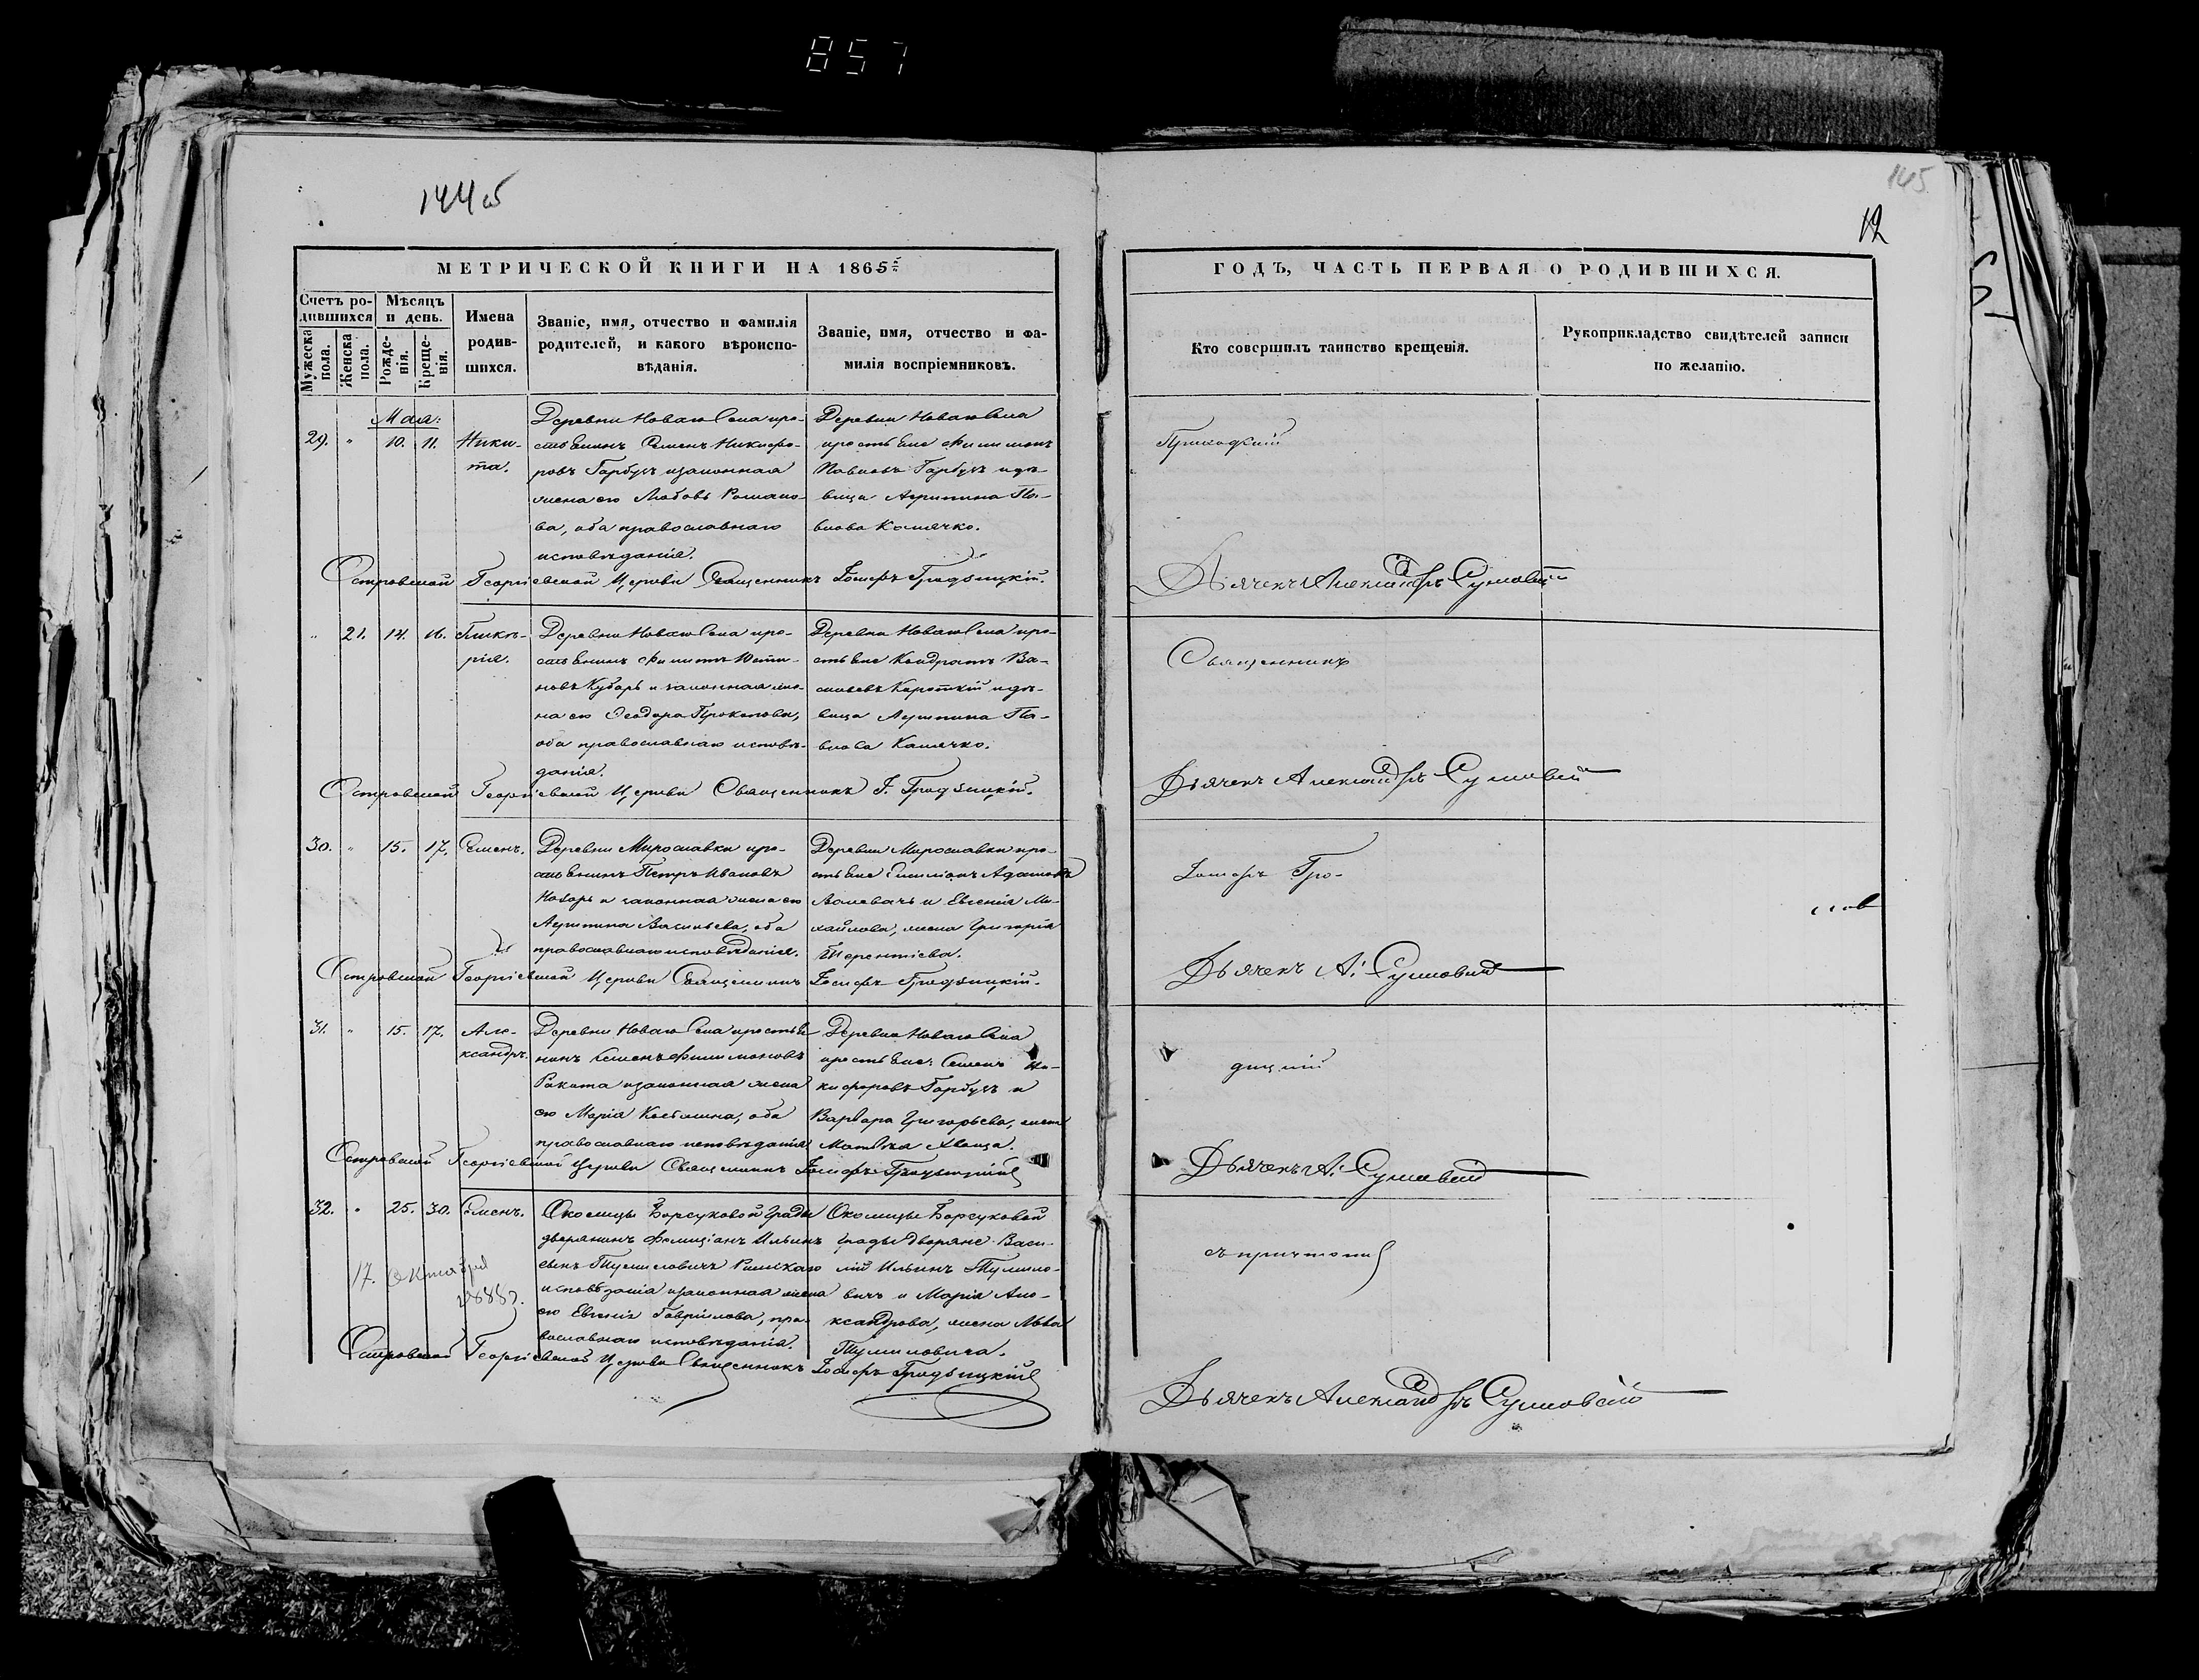 857
144об
145
12
МЕТРИЧЕСКОЙ КНИГИ НА 1865й
ГОДЪ, ЧАСТЬ ПЕРВАЯ О РОДИВШИХСЯ.
Счетъ ро-
дившихся
Мужеска пола.
Женска пола.
Мѣсяцъ
и день.
Рожде-
нія.
Креще-
нія.
Имена
родив-
шихся.
Званіе, имя, отчество и фамилія
родителей, и какого вѣроиспо-
вѣданія.
Званіе, имя, отчество и фа-
милія воспріемниковъ.
Кто совершилъ таинство крещенія.
Рукоприкладство свидѣтелей записи
по желанію.
Мая:
29. " 10. 11. Ники-
та.
Деревни Новаго Села кре-
стьянинъ Семенъ Никифо-
ровъ Гарбузъ и законная
жена его Любовь Романо-
ва, оба православнаго
исповѣданія.
Деревни Новаго Села
крестьяне Филимонъ
Павловъ Гарбузъ и дѣ-
вица Агрипина Па-
влова
Приходскій
Островской Георгіевской Церкви Священникъ Іосифъ Гродзицкій.
Дьячекъ Александръ
" 21. 14. 16. Гликѣ-
рія.
Деревни Новаго Села кре-
стьянинъ Филипъ
Кубарь и законная же-
на его Феодора Прокопова,
оба православнаго исповѣ-
данія.
Деревни Новаго Села кре-
стьяне Кондратъ Ва-
сильевъ Короткій и дѣ-
вица Агрипина Па-
влова
Священникъ
Островской Георгіевской Церкви Священникъ І. Гродзицкій.
Дьячекъ Александръ
30. " 15. 17. Семенъ.
Деревни Мирославки кре-
стьянинъ Петръ Ивановъ
и законная жена его
Агрипина Васильева, оба
православнаго исповѣданія.
Деревни Мирославки кре-
стьяне Адамовъ
и Евгенія Ми-
хайлова, жена Григорія
Терентіева.
Іосифъ Гро-
Островской Георгіевской Церкви Священникъ Іосифъ Гродзицкій.
Дьячекъ А.
31. " 15. 17. Але-
ксандръ.
Деревни Новаго Села крестья-
нинъ Семенъ Филимоновъ
Ракита и законная жена
его Марія оба
православнаго исповѣданія
Деревни Новаго Села
крестьяне: Семенъ Ни-
кифоровъ Гарбузъ и
Варвара Григорьева, жена
Матвѣя Хвоща.
дзицкій
Островской Георгіевской Церкви Священникъ Іосифъ Гродзицкій
Дьячекъ А.
32. " 25. 30. Семенъ.
17. Октября
1888 г.
Околицы Борсуковой Грады
дворянинъ Фелиціанъ Ильинъ
сынъ Тумиловичъ Римскаго
исповѣданія и законная жена
его Евгенія Гаврилова, пра-
вославнаго исповѣданія.
Околицы Борсуковой
Грады дворяне Васи-
лій Ильинъ Тумило-
вичъ и Марія Але-
ксандрова, жена Льва
Тумиловича.
съ причтомъ
Островской Георгіевской Церкви Священникъ Іосифъ Гродзицкій
Дьячекъ Александръ